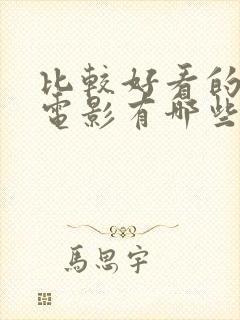 比較好看的
電影有哪些
馬思宇